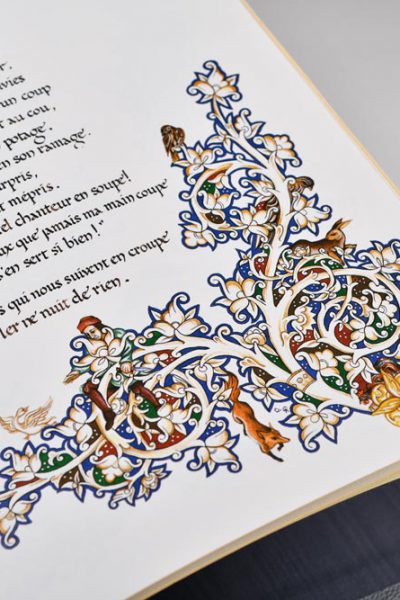 vies
un coup
t au cou,
potage.
en son ramage.
rpris,
t mépris.
el chanteur en soupe!
ux que jamais ma main coupe
en sert si bien!"
s qui nous suivent en croupe
ler ne nuit de rien.